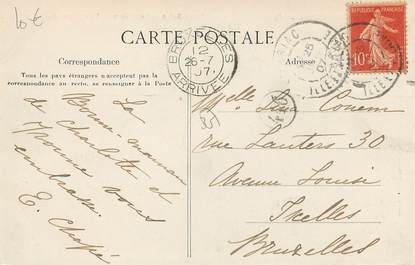 10 €
CARTE POSTALE
Correspondance
Adresse
Tous les pays étrangers n'acceptent pas la
correspondance au recto, se renseigner à la Poste
BRUXELLES
12
26-7
07
ARRIVEE
REPUBLIQUE FRANÇAISE
10
25
07
ILLE
35
La
Bonne-maman
de Charlotte et
Yvonne vous
embrasse
E.
Melle
rue Lauters 30
Avenue Louise
Ixelles
Bruxelles